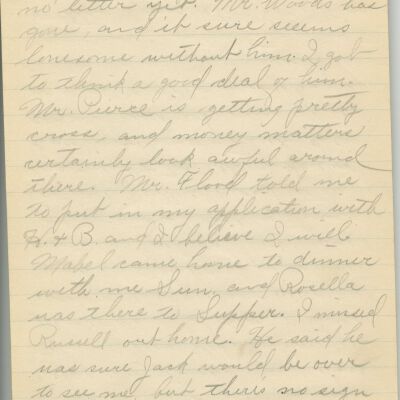 no letter yet. Mr. Woods has
gone, and it sure seems
lonesome without him. I got
to think a good deal of him.
Mr. Pierce is getting pretty
cross, and money matters
certainly look awful around
there. Mr. Flood told me
to put in my application with
H. & B. and I believe I will.
Mabel came home to dinner
with me Sun. and Rosella
was there to Supper. I missed
Russell out home. He said he
was sure Jack would be over
to see me, but there's no sign